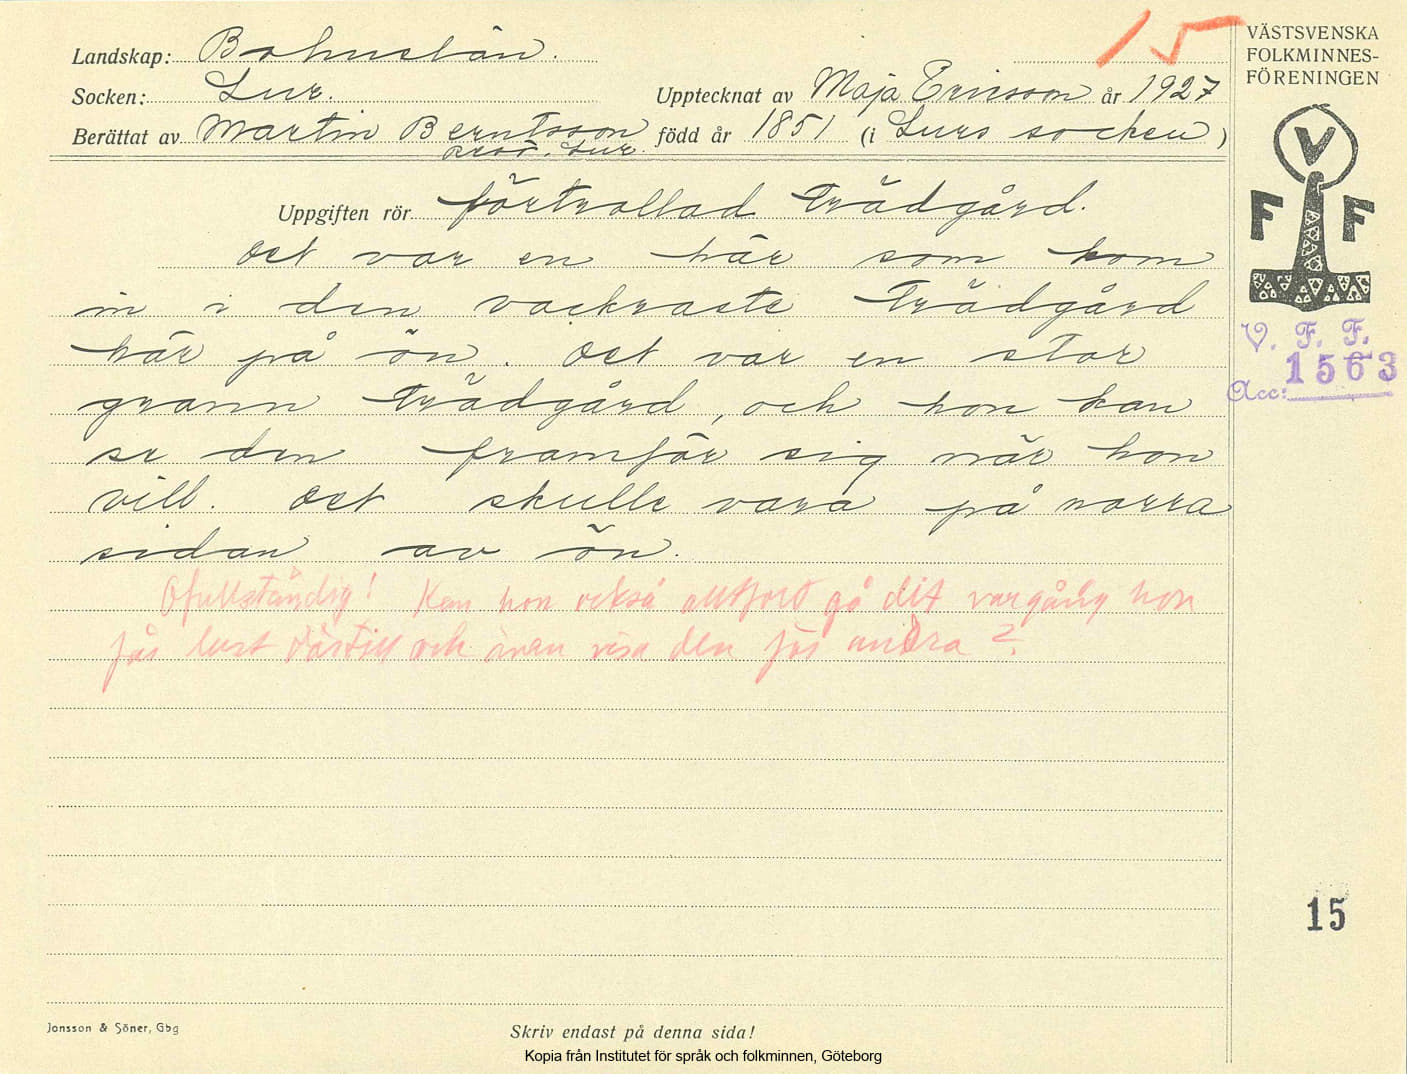 15
VÄSTSVENSKA
FOLKMINNES-
FÖRENINGEN
Landskap: Bohuslän.
Socken: Lur. Upptecknat av Maja Ericsson år 1927
Berättat av Martin Berntsson född år 1851 (i Lurs socken)
Lur.
Uppgiften rör förtrollad Trädgård.
Det var en här som kom
in i den vackraste Trädgård
här på ön. Det var en stor
grann Trädgård, och hon kan
se den framför sig när hon
vill. Det skulle vara på norra
sidan av ön.
Ofullständig! Kan hon också alltfort gå dit vargång hon
får lust därtill och även visa den för andra?
V
F F
V. F. F.
1563
Acc:
15
Jonsson & Söner, Gbg
Skriv endast på denna sida!
Kopia från Institutet för språk och folkminnen, Göteborg